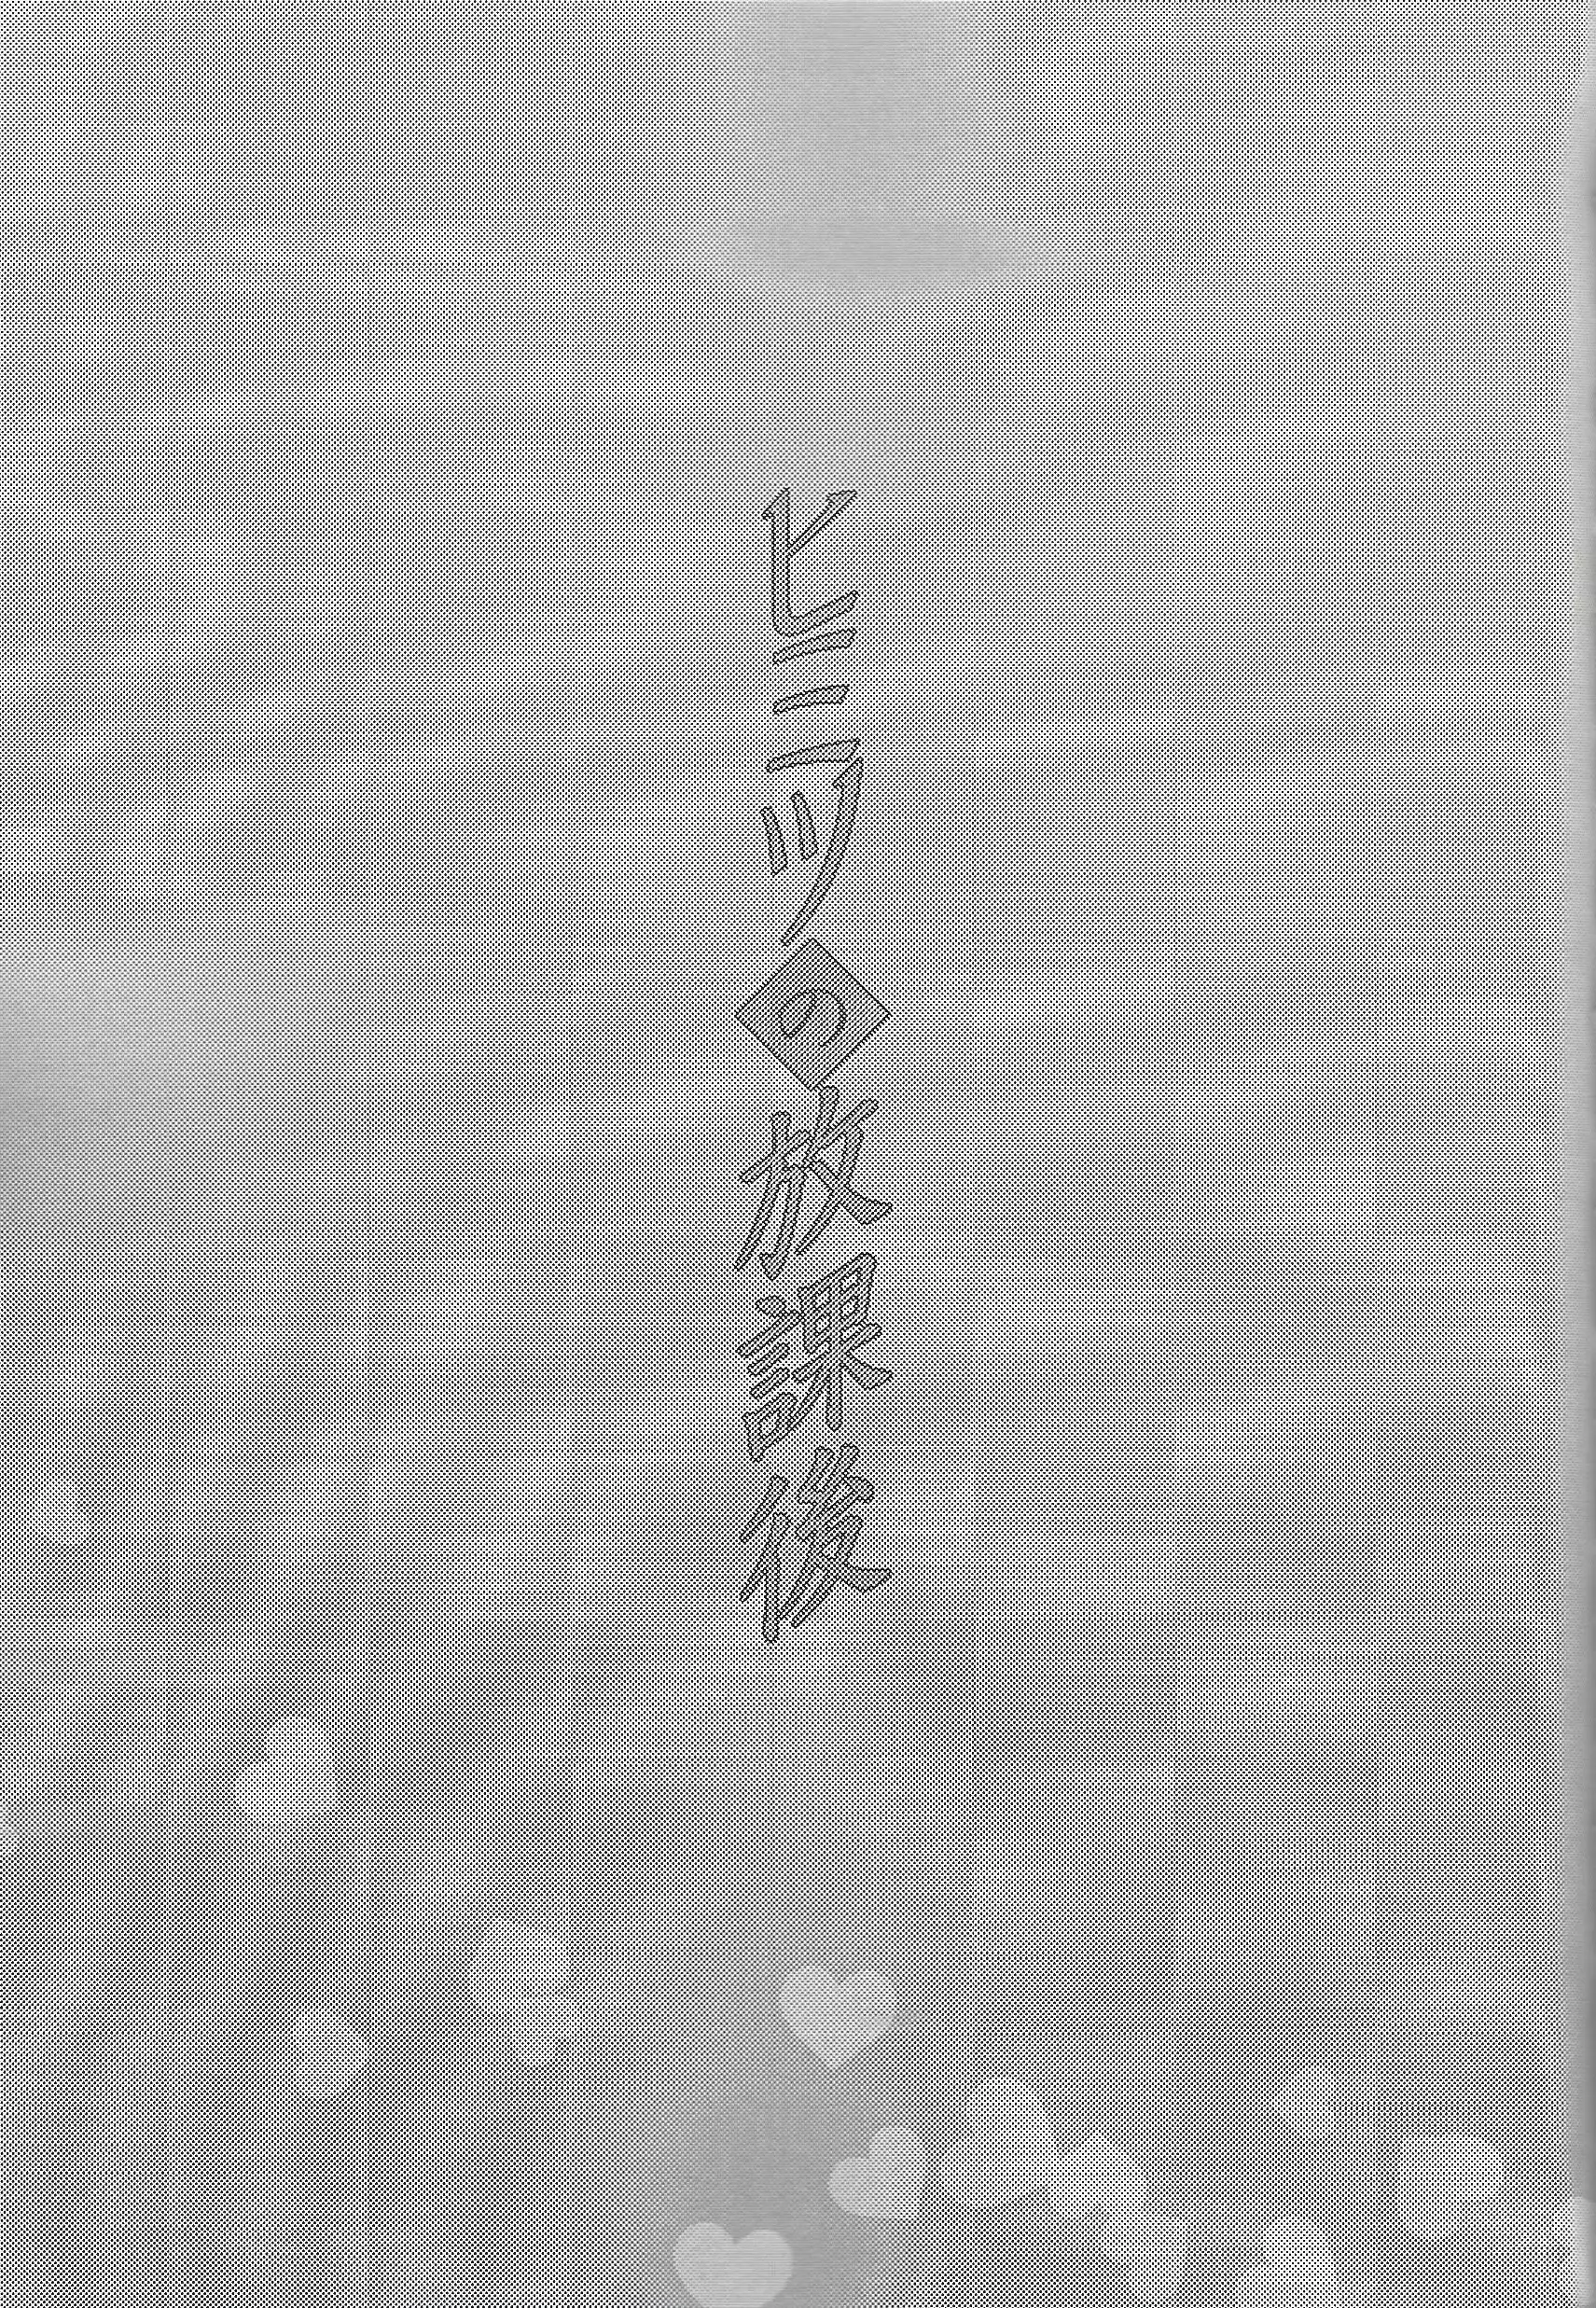 ヒミツの放課後